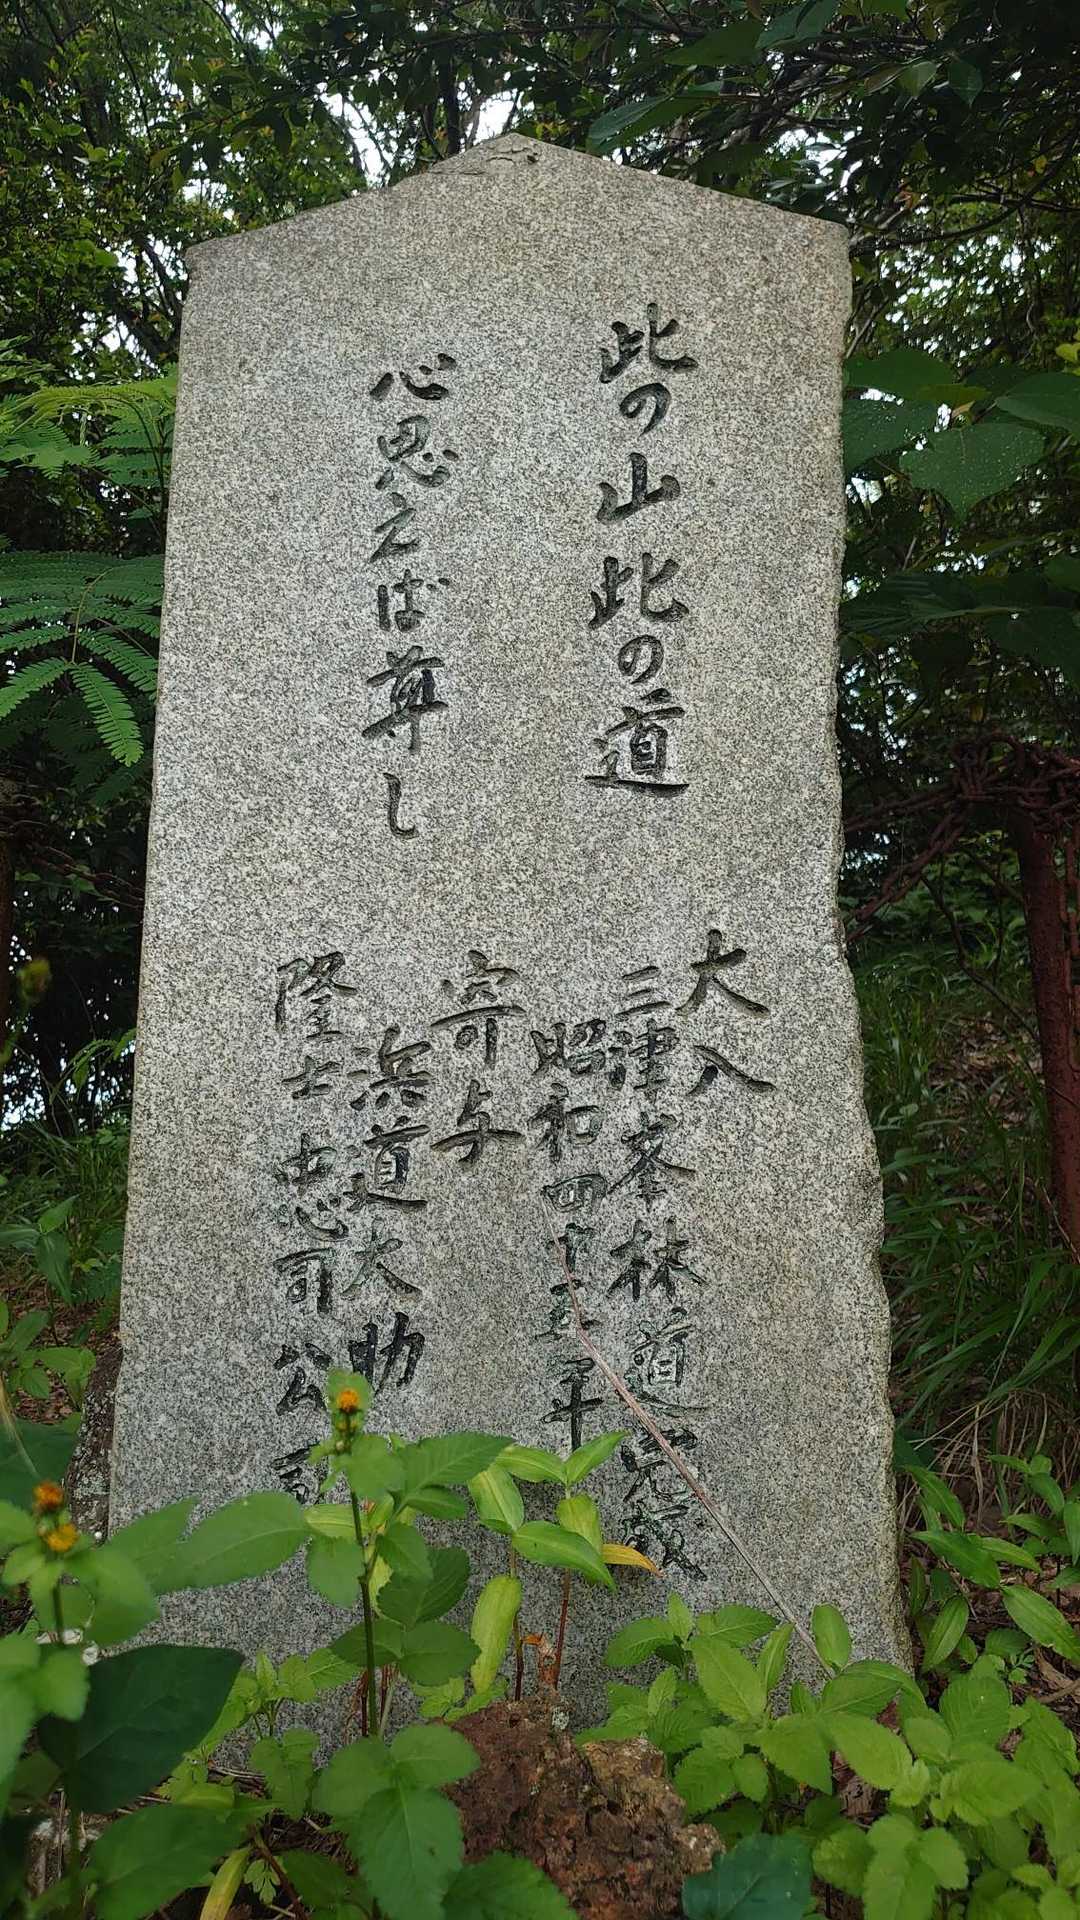 此の山此の道
心思えば尊し
大入
三津峯林道完成
昭和四十五年
寄与
浜道大助
隆士忠司公司